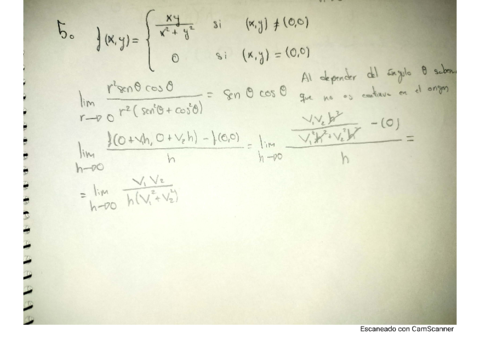 5. f(x,y) = { xy / (x² + y²) si (x,y) ≠ (0,0)
0 si (x,y) = (0,0)
lim r→0 r² senθ cosθ / r² (sen²θ + cos²θ) = sen θ cos θ Al depender del ángulo θ
que no es continua en el origen
lim h→0 (f(0 + v₁h, 0 + v₂h) - f(0,0)) / h = lim h→0 (v₁ v₂ h² / (v₁²h² + v₂²h²) - (0)) / h =
= lim h→0 v₁ v₂ / h(v₁² + v₂²)
Escaneado con CamScanner